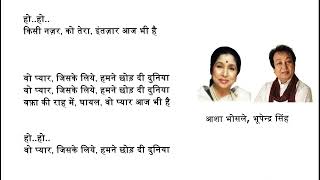 हो..हो..
किसी नज़र, को तेरा, इंतज़ार आज भी है
वो प्यार, जिसके लिये, हमने छोड़ दी दुनिया
वो प्यार, जिसके लिये, हमने छोड़ दी दुनिया
वफ़ा की राह में, घायल, वो प्यार आज भी है
आशा भोसले, भूपेन्द्र सिंह
हो..हो..
वो प्यार, जिसके लिये, हमने छोड़ दी दुनिया